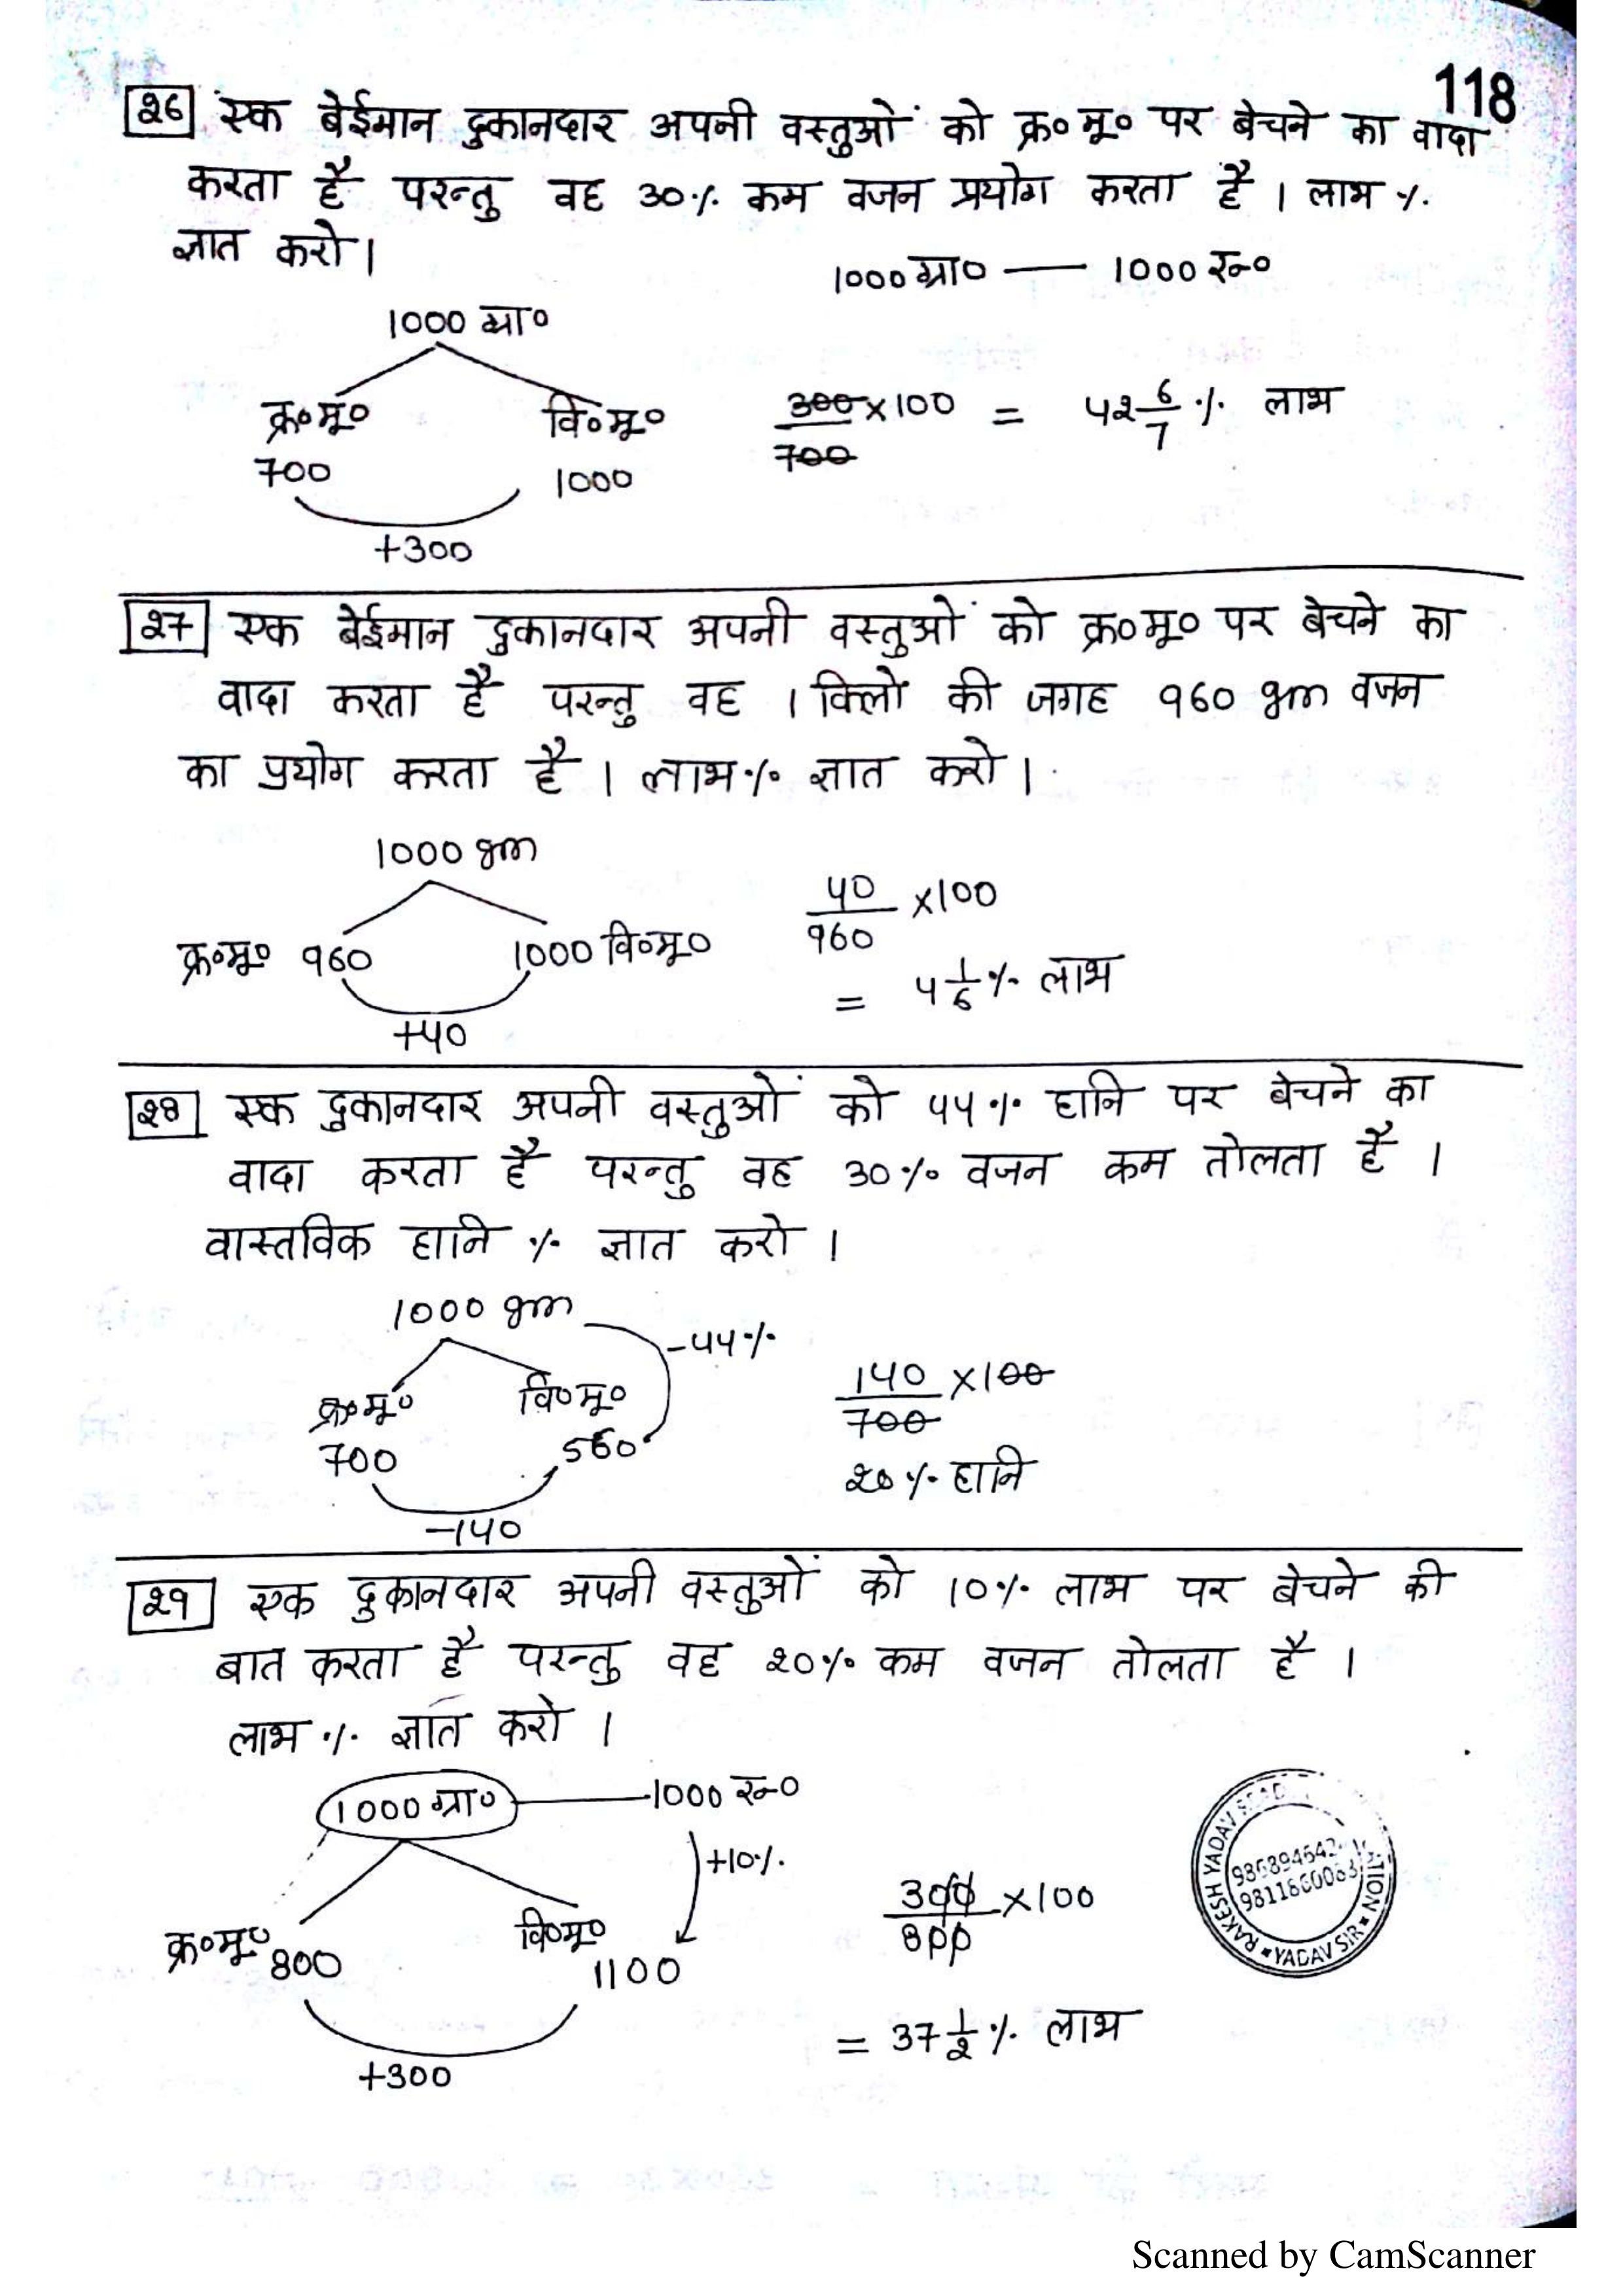 118
26 एक बेईमान दुकानदार अपनी वस्तुओं को क्र०मू० पर बेचने का वादा
करता है परन्तु वह 30% कम वजन प्रयोग करता है । लाभ %
ज्ञात करो ।
1000 ग्रा० — 1000 रू०
1000 ग्रा०
क्र०मू० वि०मू०
700 1000
+300
300/700 ×100 = 42 6/7 % लाभ
27 एक बेईमान दुकानदार अपनी वस्तुओं को क्र०मू० पर बेचने का
वादा करता है परन्तु वह 1 किलो की जगह 960 gm वजन
का प्रयोग करता है । लाभ % ज्ञात करो ।
1000 gm
क्र०मू० 960 1000 वि०मू०
+40
40/960 ×100
= 4 1/6 % लाभ
28 एक दुकानदार अपनी वस्तुओं को 44% हानि पर बेचने का
वादा करता है परन्तु वह 30% वजन कम तोलता है ।
वास्तविक हानि % ज्ञात करो ।
1000 gm
-44%
क्र०मू० वि०मू०
700 560
-140
140/700 ×100
20% हानि
29 एक दुकानदार अपनी वस्तुओं को 10% लाभ पर बेचने की
बात करता है परन्तु वह 20% कम वजन तोलता है ।
लाभ % ज्ञात करो ।
1000 ग्रा० — 1000 रू०
+10%
क्र०मू० 800 वि०मू० 1100
+300
300/800 ×100
= 37 1/2 % लाभ
RAKESH YADAV
YADAV SIR
Scanned by CamScanner